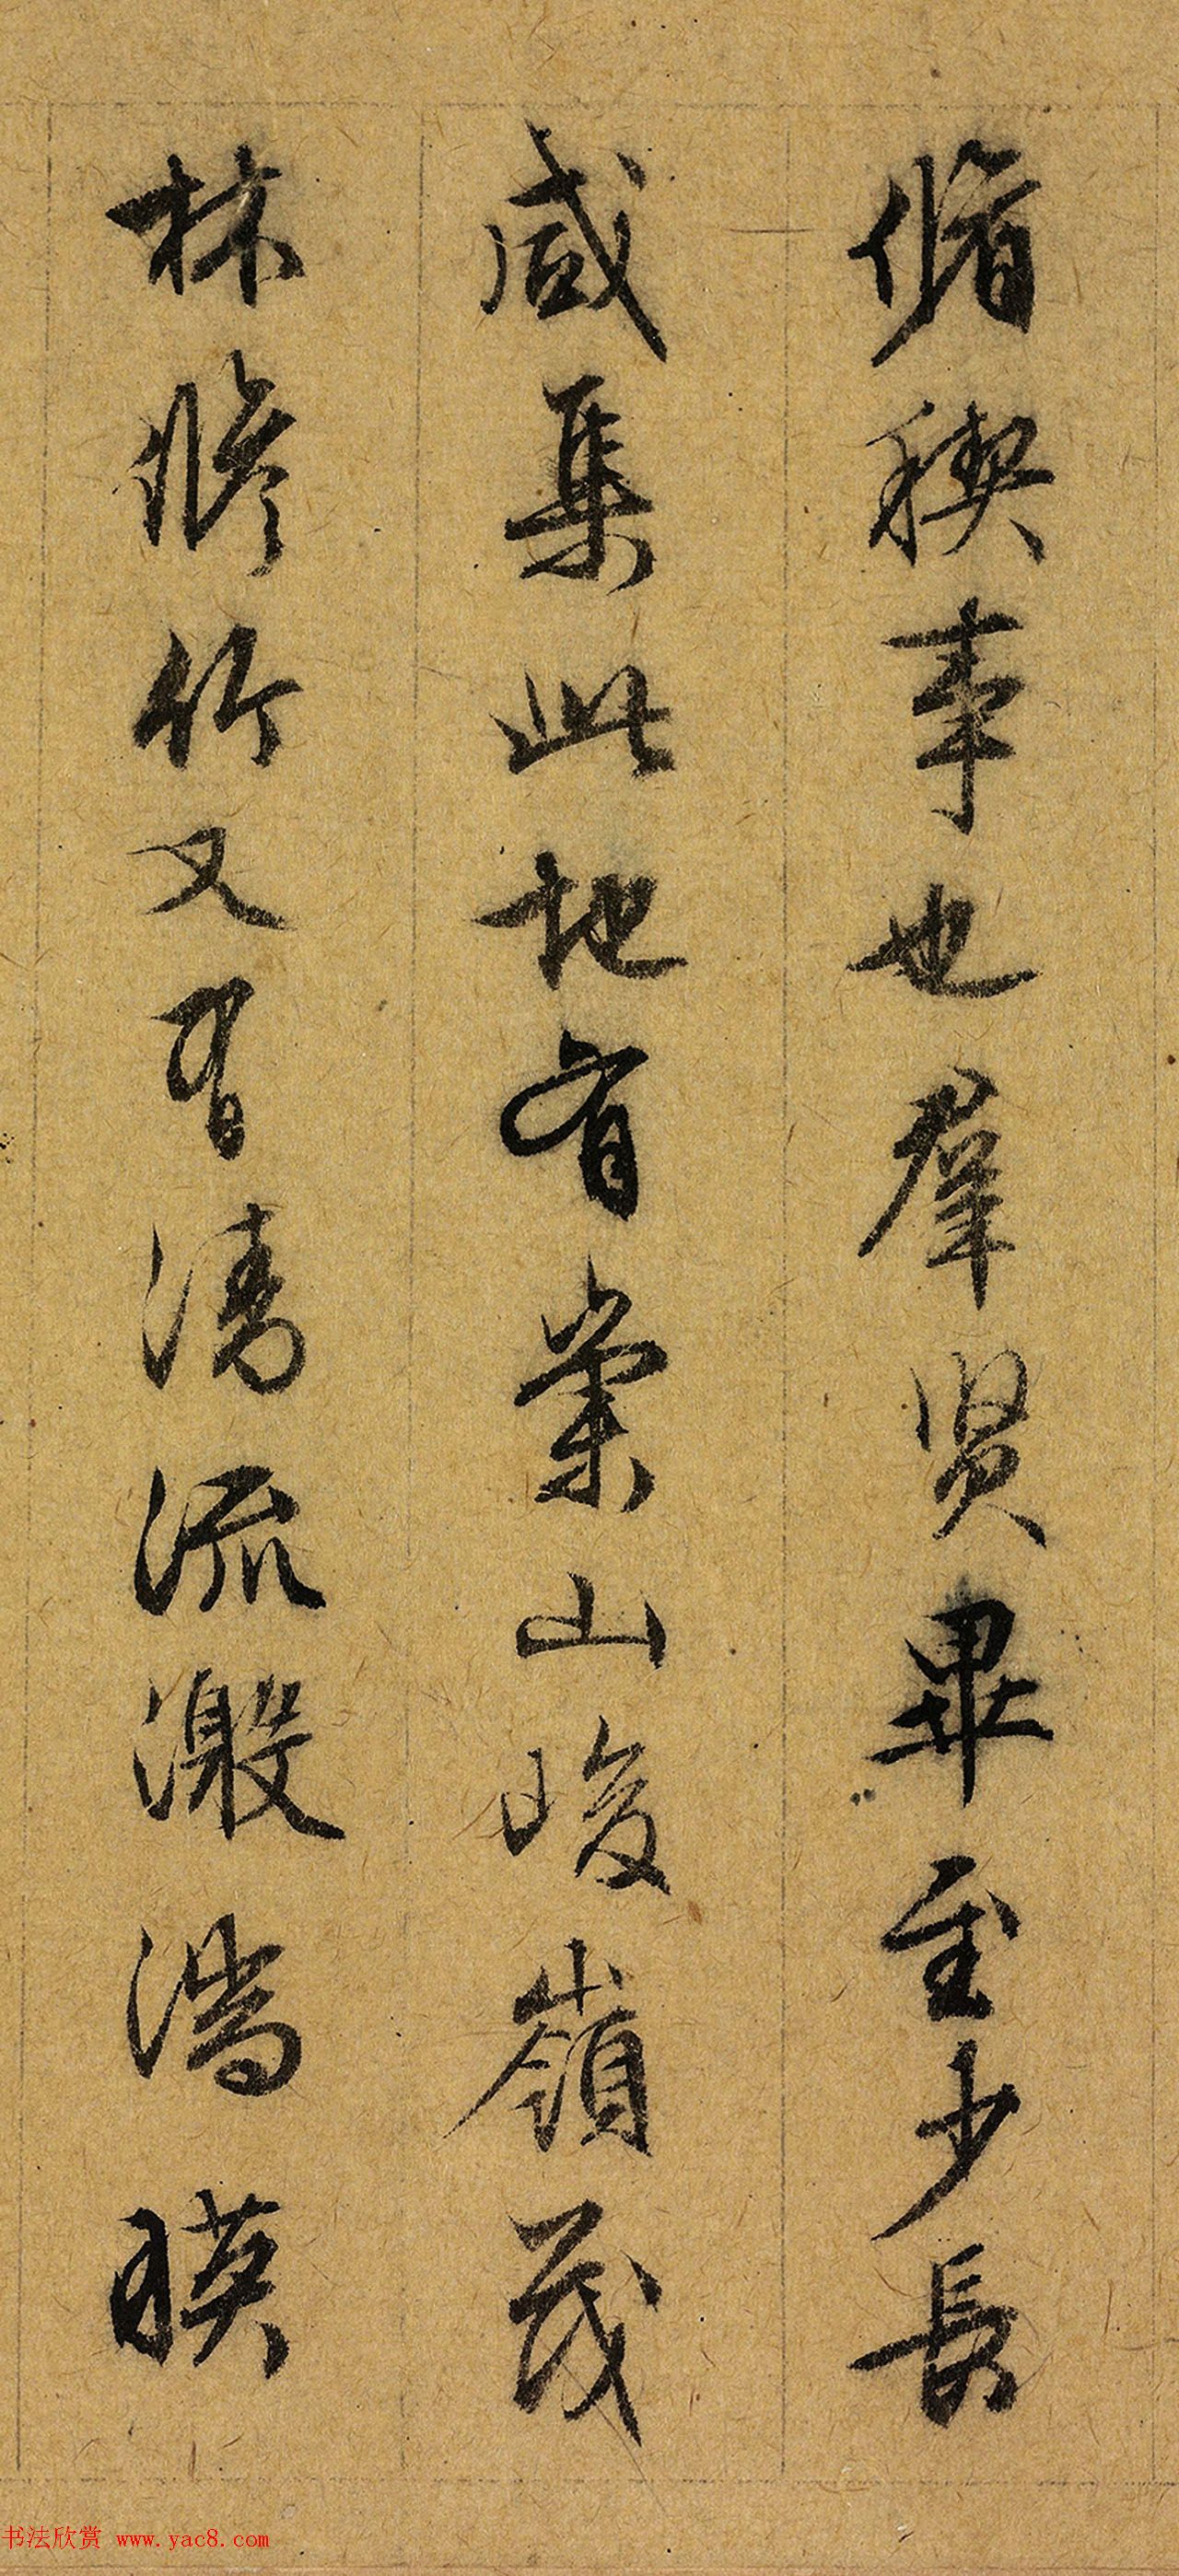 脩稧事也羣賢畢至少長
咸集此地有崇山峻嶺茂
林修竹又有清流激湍暎
书法欣赏 www.yac8.com